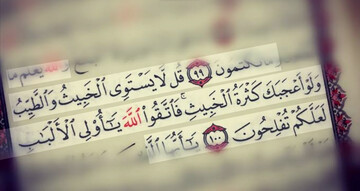 تكتمون ٩٩ قُل لَّا يَسْتَوِى الْخَبِيثُ وَالطَّيِّبُ
وَلَوْ أَعْجَبَكَ كَثْرَةُ الْخَبِيثِ ۚ فَاتَّقُوا اللَّهَ يَا أُولِى الْأَلْبَابِ
لَعَلَّكُمْ تُفْلِحُونَ ١٠٠ يَا أَيُّهَا